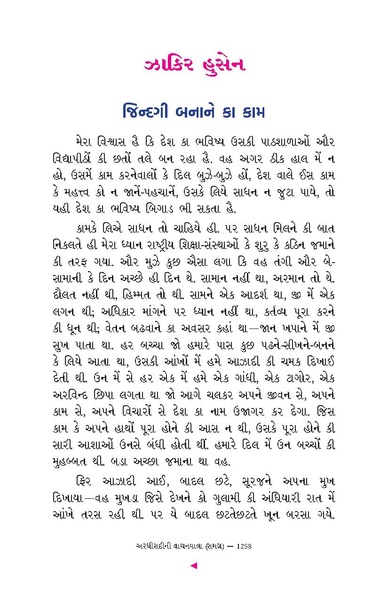 ઝાકિર હુસેન
જિન્દગી બનાને કા કામ
મેરા વિશ્વાસ હૈ કિ દેશ કા ભવિષ્ય ઉસકી પાઠશાળાઓં ઔર
વિદ્યાપીઠોં કી છતોં તલે બન રહા હૈ. વહ અગર ઠીક હાલ મેં ન
હો, ઉસમેં કામ કરનેવાલોં કે દિલ બુઝે-બુઝે હોં, દેશ વાલે ઈસ કામ
કે મહત્ત્વ કો ન જાનેં-પહચાનેં, ઉસકે લિયે સાધન ન જુટા પાયે, તો
યહી દેશ કા ભવિષ્ય બિગાડ ભી સકતા હૈ.
કામકે લિએ સાધન તો ચાહિયે હી. પર સાધન મિલને કી બાત
નિકલતે હી મેરા ધ્યાન રાષ્ટ્રીય શિક્ષા-સંસ્થાઓં કે શુરુ કે કઠિન જમાને
કી તરફ ગયા. ઔર મુઝે કુછ ઐસા લગા કિ વહ તંગી ઔર બે-
સામાની કે દિન અચ્છે હી દિન થે. સામાન નહીં થા, અરમાન તો થે.
દૌલત નહીં થી, હિમ્મત તો થી. સામને એક આદર્શ થા, જી મેં એક
લગન થી; અધિકાર માંગને પર ધ્યાન નહીં થા, કર્તવ્ય પૂરા કરને
કી ધૂન થી; વેતન બઢવાને કા અવસર કહાં થા—જાન ખપાને મેં જી
સુખ પાતા થા. હર બચ્ચા જો હમારે પાસ કુછ પઢને-સીખને-બનને
કે લિયે આતા થા, ઉસકી આંખોં મેં હમે આઝાદી કી ચમક દિખાઈ
દેતી થી. ઉન મેં સે હર એક મેં હમે એક ગાંધી, એક ટાગોર, એક
અરવિન્દ છિપા લગતા થા જો આગે ચલકર અપને જીવન સે, અપને
કામ સે, અપને વિચારોં સે દેશ કા નામ ઉજાગર કર દેગા. જિસ
કામ કે અપને હાથોં પૂરા હોને કી આસ ન થી, ઉસકે પૂરા હોને કી
સારી આશાઓં ઉનસે બંધી હોતી થીં. હમારે દિલ મેં ઉન બચ્ચોં કી
મુહબ્બત થી. બડા અચ્છા જમાના થા વહ.
ફિર આઝાદી આઈ, બાદલ છટે, સૂરજને અપના મુખ
દિખાયા—વહ મુખડા જિસે દેખને કો ગુલામી કી અંધિયારી રાત મેં
આંખે તરસ રહી થી. પર યે બાદલ છટતેછટતે ખૂન બરસા ગયે.
અરધીસદીની વાચનયાત્રા (સમગ્ર) — 1255